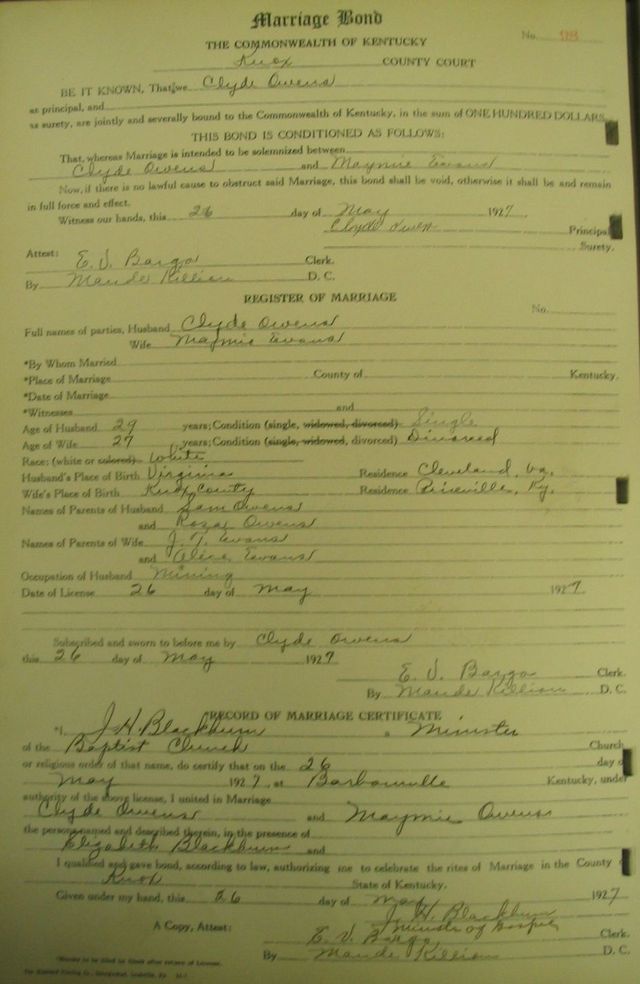 Marriage Bond
No. 
THE COMMONWEALTH OF KENTUCKY
Knox COUNTY COURT
BE IT KNOWN, That we Clyde Owens
as principal, and
as surety, are jointly and severally bound to the Commonwealth of Kentucky, in the sum of ONE HUNDRED DOLLARS.
THIS BOND IS CONDITIONED AS FOLLOWS:
That, whereas Marriage is intended to be solemnized between
Clyde Owens and Maymie Evans
Now, if there is no lawful cause to obstruct said Marriage, this bond shall be void, otherwise it shall be and remain
in full force and effect.
Witness our hands, this 26 day of May 1927
Clyde Owen Principal
Surety.
Attest: E. V. Bargo Clerk.
By Maude Killion D. C.
REGISTER OF MARRIAGE
No.
Full names of parties, Husband Clyde Owens
Wife Maymie Evans
*By Whom Married
*Place of Marriage County of Kentucky.
*Date of Marriage
*Witnesses and
Age of Husband 29 years; Condition (single, widowed, divorced) Single
Age of Wife 27 years; Condition (single, widowed, divorced) Divorced
Race: (white or colored) White
Husband's Place of Birth Virginia Residence Cleveland, Va.
Wife's Place of Birth Knox County Residence Pineville, Ky.
Names of Parents of Husband Sam Owens
and Owens
Names of Parents of Wife J. T. Evans
and Alice Evans
Occupation of Husband Mining
Date of License 26 day of May 1927
Subscribed and sworn to before me by Clyde Owens
this 26 day of May 1927
E. V. Bargo Clerk.
By Maude Killion D. C.
*RECORD OF MARRIAGE CERTIFICATE
*I, J. H. Blackburn a Minister
of the Baptist Church Church
or religious order of that name, do certify that on the 26 day of
May 1927, at Barbourville Kentucky, under
authority of the above license, I united in Marriage
Clyde Owens and Maymie Owens
the persons named and described therein, in the presence of
Elizabeth Blackburn and
I qualified and gave bond, according to law, authorizing me to celebrate the rites of Marriage in the County of
Knox State of Kentucky.
Given under my hand, this 26 day of May 1927
J. H. Blackburn
Minister of Gospel
A Copy, Attest: E. V. Bargo Clerk.
By Maude Killion D. C.